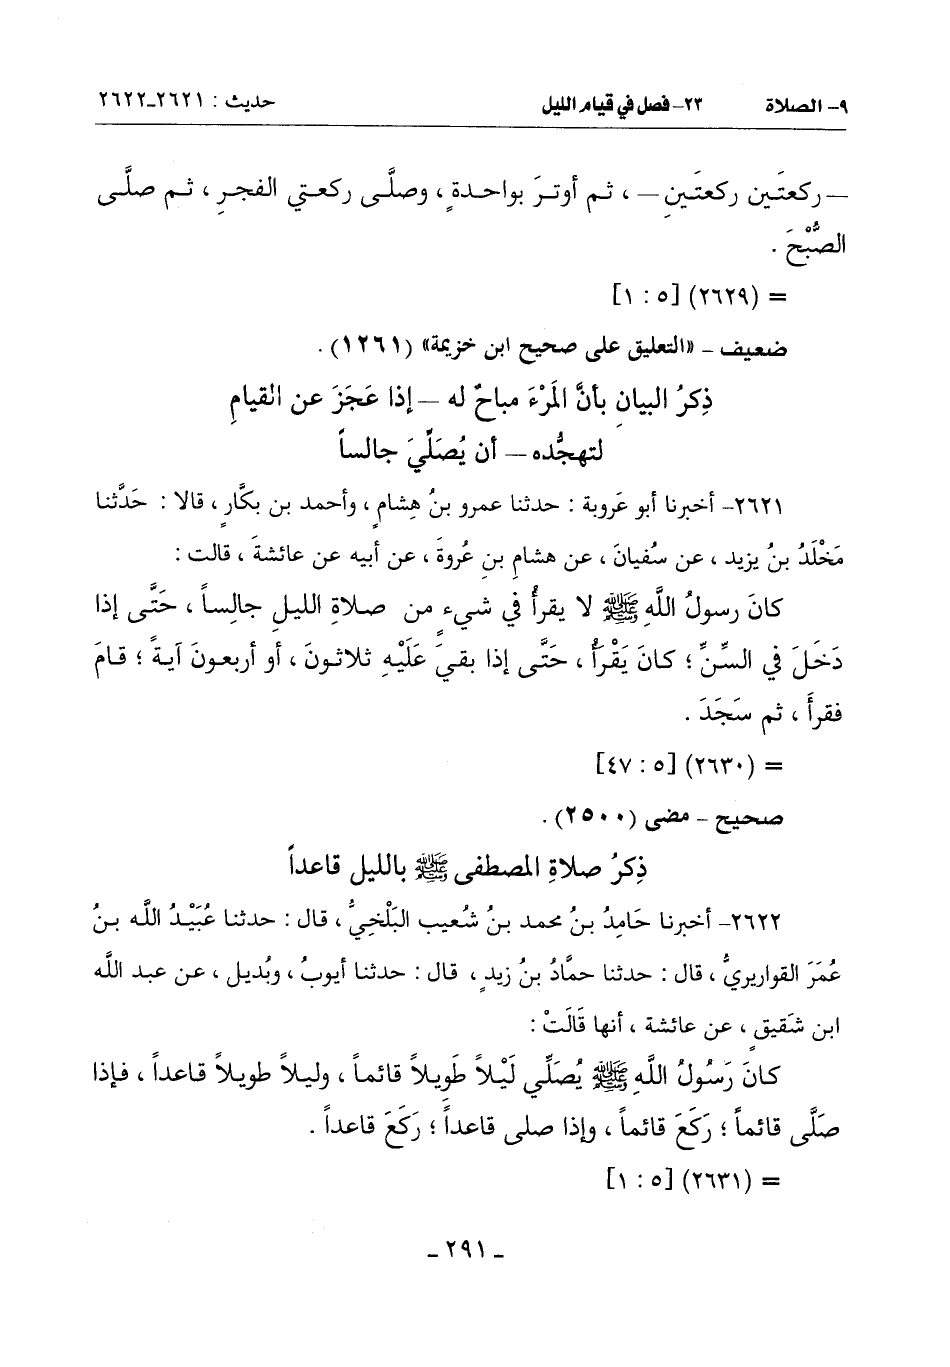 ٩- الصلاة ٢٣- فصل في قيام الليل حديث : ٢٦٢١-٢٦٢٢
— ركعتَين ركعتَينِ — ، ثم أوترَ بواحدةٍ ، وصلَّى ركعتي الفجرِ ، ثم صلَّى
الصُّبْحَ .
= (٢٦٢٩) [٥ : ١]
ضعيف - «التعليق على صحيح ابن خزيمة» (١٢٦١) .
ذِكرُ البيانِ بأنَّ المَرْءَ مباحٌ له — إذا عَجَزَ عن القيامِ
لتهجُّده — أن يُصَلِّيَ جالساً
٢٦٢١- أخبرنا أبو عَروبة : حدثنا عمرو بنُ هِشامٍ ، وأحمد بن بكَّارٍ ، قالا : حَدَّثنا
مَخْلَدُ بنُ يزيد ، عن سُفيان ، عن هشامِ بنِ عُروةَ ، عن أبيه عن عائشةَ ، قالت :
كانَ رسولُ اللَّهِ ﷺ لا يقرأُ في شيءٍ من صلاةِ الليلِ جالِساً ، حَتَّى إذا
دَخَلَ في السِّنِّ ؛ كانَ يَقْرَأُ ، حَتَّى إذا بقيَ عَلَيْهِ ثلاثونَ ، أو أربعونَ آيةً ؛ قامَ
فقرأَ ، ثم سَجَدَ .
= (٢٦٣٠) [٥ : ٤٧]
صحيح - مضى (٢٥٠٠) .
ذِكرُ صلاةِ المصطفى ﷺ بالليل قاعداً
٢٦٢٢- أخبرنا حَامِدُ بنُ محمد بنُ شُعيب البَلْخِيُّ ، قال : حدثنا عُبَيْدُ اللَّه بنُ
عُمَرَ القواريريُّ ، قال : حدثنا حمَّادُ بنُ زيدٍ ، قال : حدثنا أيوبُ ، وبُديل ، عن عبد اللَّه
ابن شَقيقٍ ، عن عائشة ، أنها قَالَتْ :
كانَ رَسُولُ اللَّهِ ﷺ يُصَلِّي لَيْلاً طَوِيلاً قائماً ، وليلاً طويلاً قاعداً ، فإذا
صَلَّى قائماً ؛ رَكَعَ قائماً ، وإذا صلى قاعداً ؛ رَكَعَ قاعداً .
= (٢٦٣١) [٥ : ١]
- ٢٩١ -